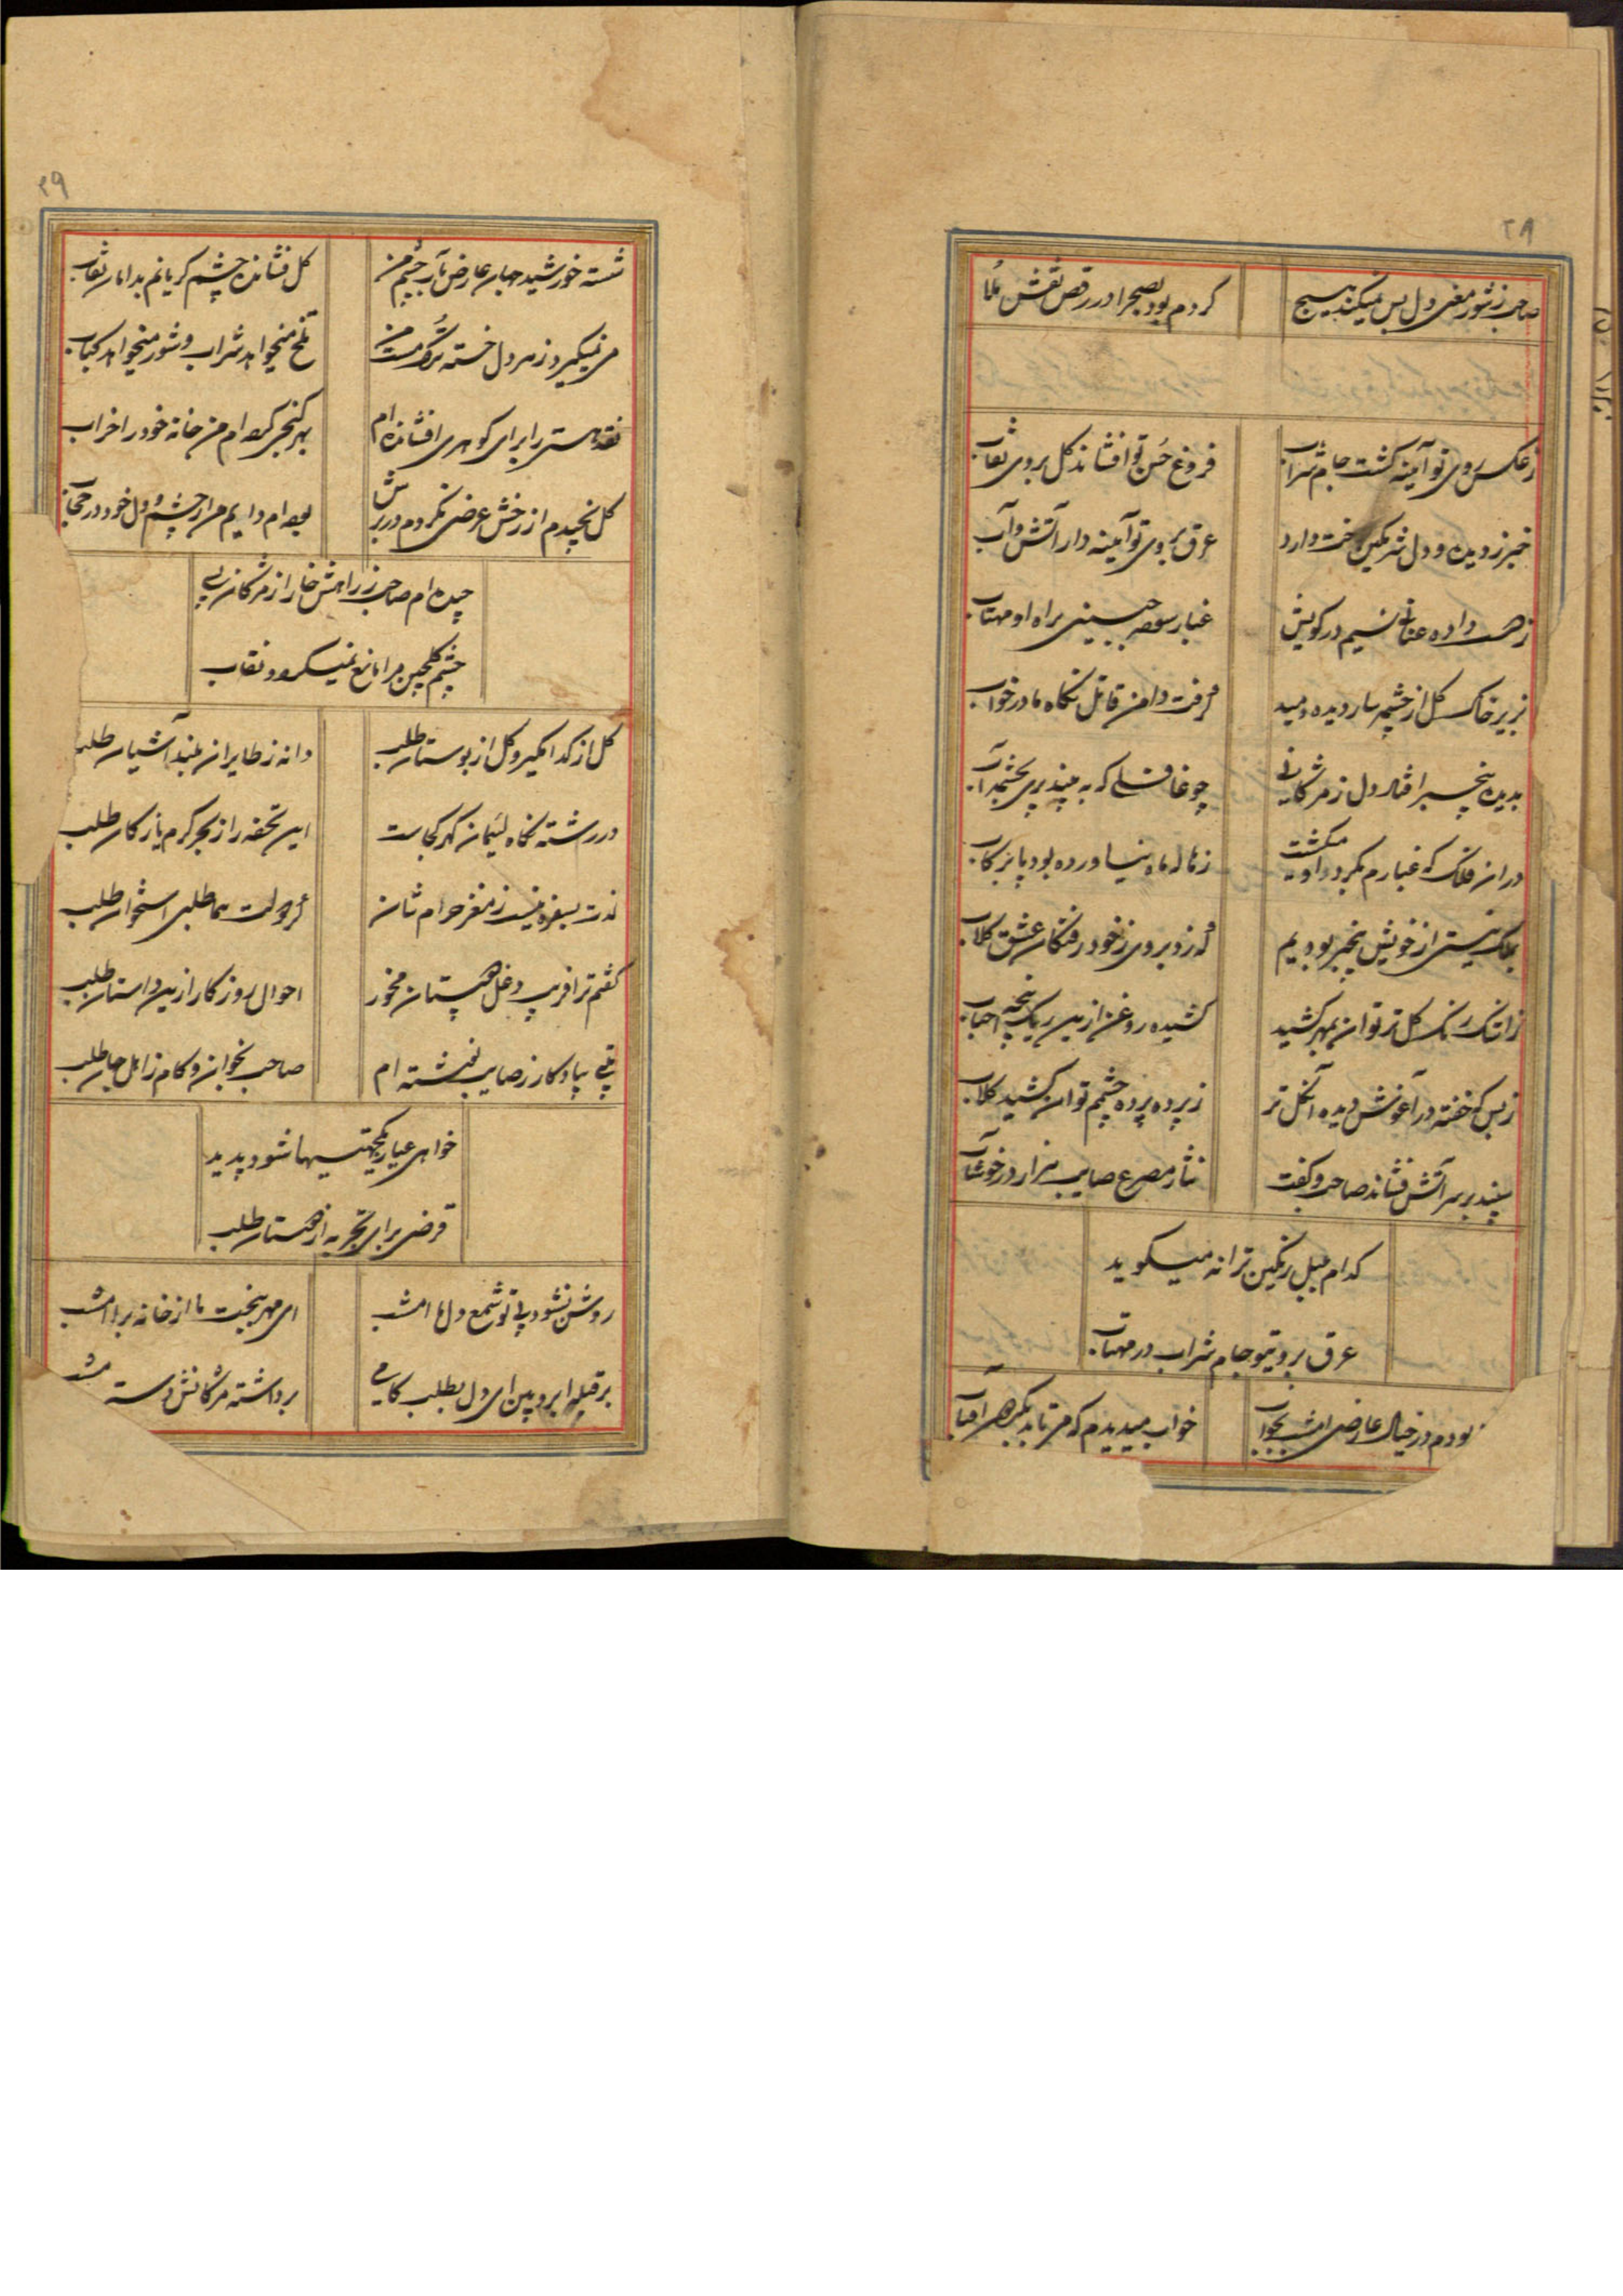 ۲۸
صاحب ز شور مغنی دل بس نمیکند بسیج
کردم بود بصحرا در رقص نقش ملا
ز عکس روی تو آئینه گشت جام شراب
فروغ حسن تو افشاند کل بروی نقاب
خبر ز دیده و دل شرمکین رخت دارد
عرق بروی تو آئینه دار آتش و آب
ز دست داده عنان نسیم در کویش
غبار سوده جبینی براه او مهتاب
بزیر خاک کل از چشمه سار دیده دمید
گرفت دامن قاتل نگاه ما در خواب
بدیده بیخبر افتاد دل ز مژگانی
چو غافلی که به بیند پری بچشم پر آب
در ان فلک که غبارم بکرد او میکشت
ز هاله ماه نیاورده بود پا برکاب
بملک نیستی از خویش بیخبر بودیم
که زد بروی ز خود رفتکان عشق کلاب
ز اشک رنک کل تر توان بمهر کشید
کشیده روغن ازین ریک پنجه احباب
ز بس که خفته در آغوش دیده آن کل تر
ز پرده پرده چشمم توان کشید کلاب
سپند بر سر آتش فشاند صاحب و کفت
نثار مصرع صایب هزار در خوشاب
کدام بلبل رنکین ترانه میکوید
عرق بروی تو جام شراب در مهتاب
بودم در خیال عارضی امشب بخواب
خواب میدیدم که می تابد بکبر هر آفتاب
۲۹
شسته خورشید جهان عارض بآب چشم من
کل فشانده چشم کریانم بدامان نقاب
می نمیکیرد ز هر دل خسته ترک مست من
تلخ میخواهد شراب و شور میخواهد کباب
نقد هستی را برای کوهری افشانده ام
بهر کنجی کرده ام من خانه خود را خراب
کل نچیدم از رخش عرضی نکردم در برش
بوده ام دایم من از چشم و دل خود در حجاب
چیده ام صاحب ز راهش خار از مژکان بسی
چشم کلچین مرا مانع نمیکردد نقاب
کل از کدا مکیر و کل از بوستان طلب
دانه ز طایران بلند آشیان طلب
در رشته نکاه لئیمان کهر کجاست
این تحفه را ز بحر کرم یا ز کان طلب
لذت بسفره نیست ز مغز حرام شان
گر دولت هما طلبی استخوان طلب
کفتم ترا فریب دغل هیستان مخور
احوال روزکار ازین داستان طلب
بیتی بیادکار ز صایب نوشته ام
صاحب بخوان و کام ز اهل جهان طلب
خواهی عیار یکجهتیها شود پدید
قرضی برای تجربه از دوستان طلب
روشن نشود بی تو شمع دلها امشب
ای مهر بیخبت ما از خانه برا امشب
بر قبله ابرو بین ای دل بطلب کامی
برداشته مژکانش دست